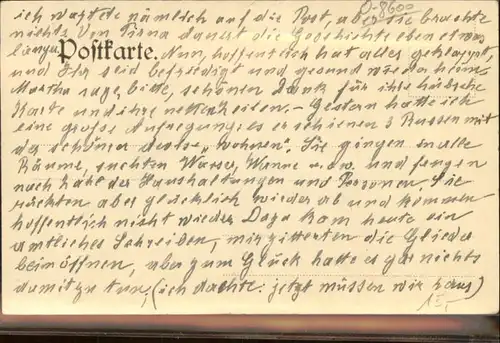 O-8600
ich wartete nämlich auf die Post, aber sie brachte
nichts. Von Pirna dauert die Geschichte eben etwas
länger. Nun, hoffentlich hat alles geklappt,
Postkarte.
und Ihr seid befriedigt und gesund wieder heim.
Martha sage, bitte, schönen Dank für ihre hübsche
Karte und ihre netten Zeilen. – Gestern hatte ich
eine große Aufregung: es erschienen 3 Russen mit
der schönen „wohnen". Sie gingen in alle
Räume, suchten Wasser, Wanne u.s.w. und fragen
nach Zahl der Haushaltungen und Personen. Sie
rückten aber glücklich wieder ab und kommen
hoffentlich nicht wieder. Dazu kam heute ein
amtliches Schreiben, mir zitterten die Glieder
beim öffnen, aber zum Glück hatte es gar nichts
damit zu tun, (ich dachte: jetzt müssen wir raus)
15,-